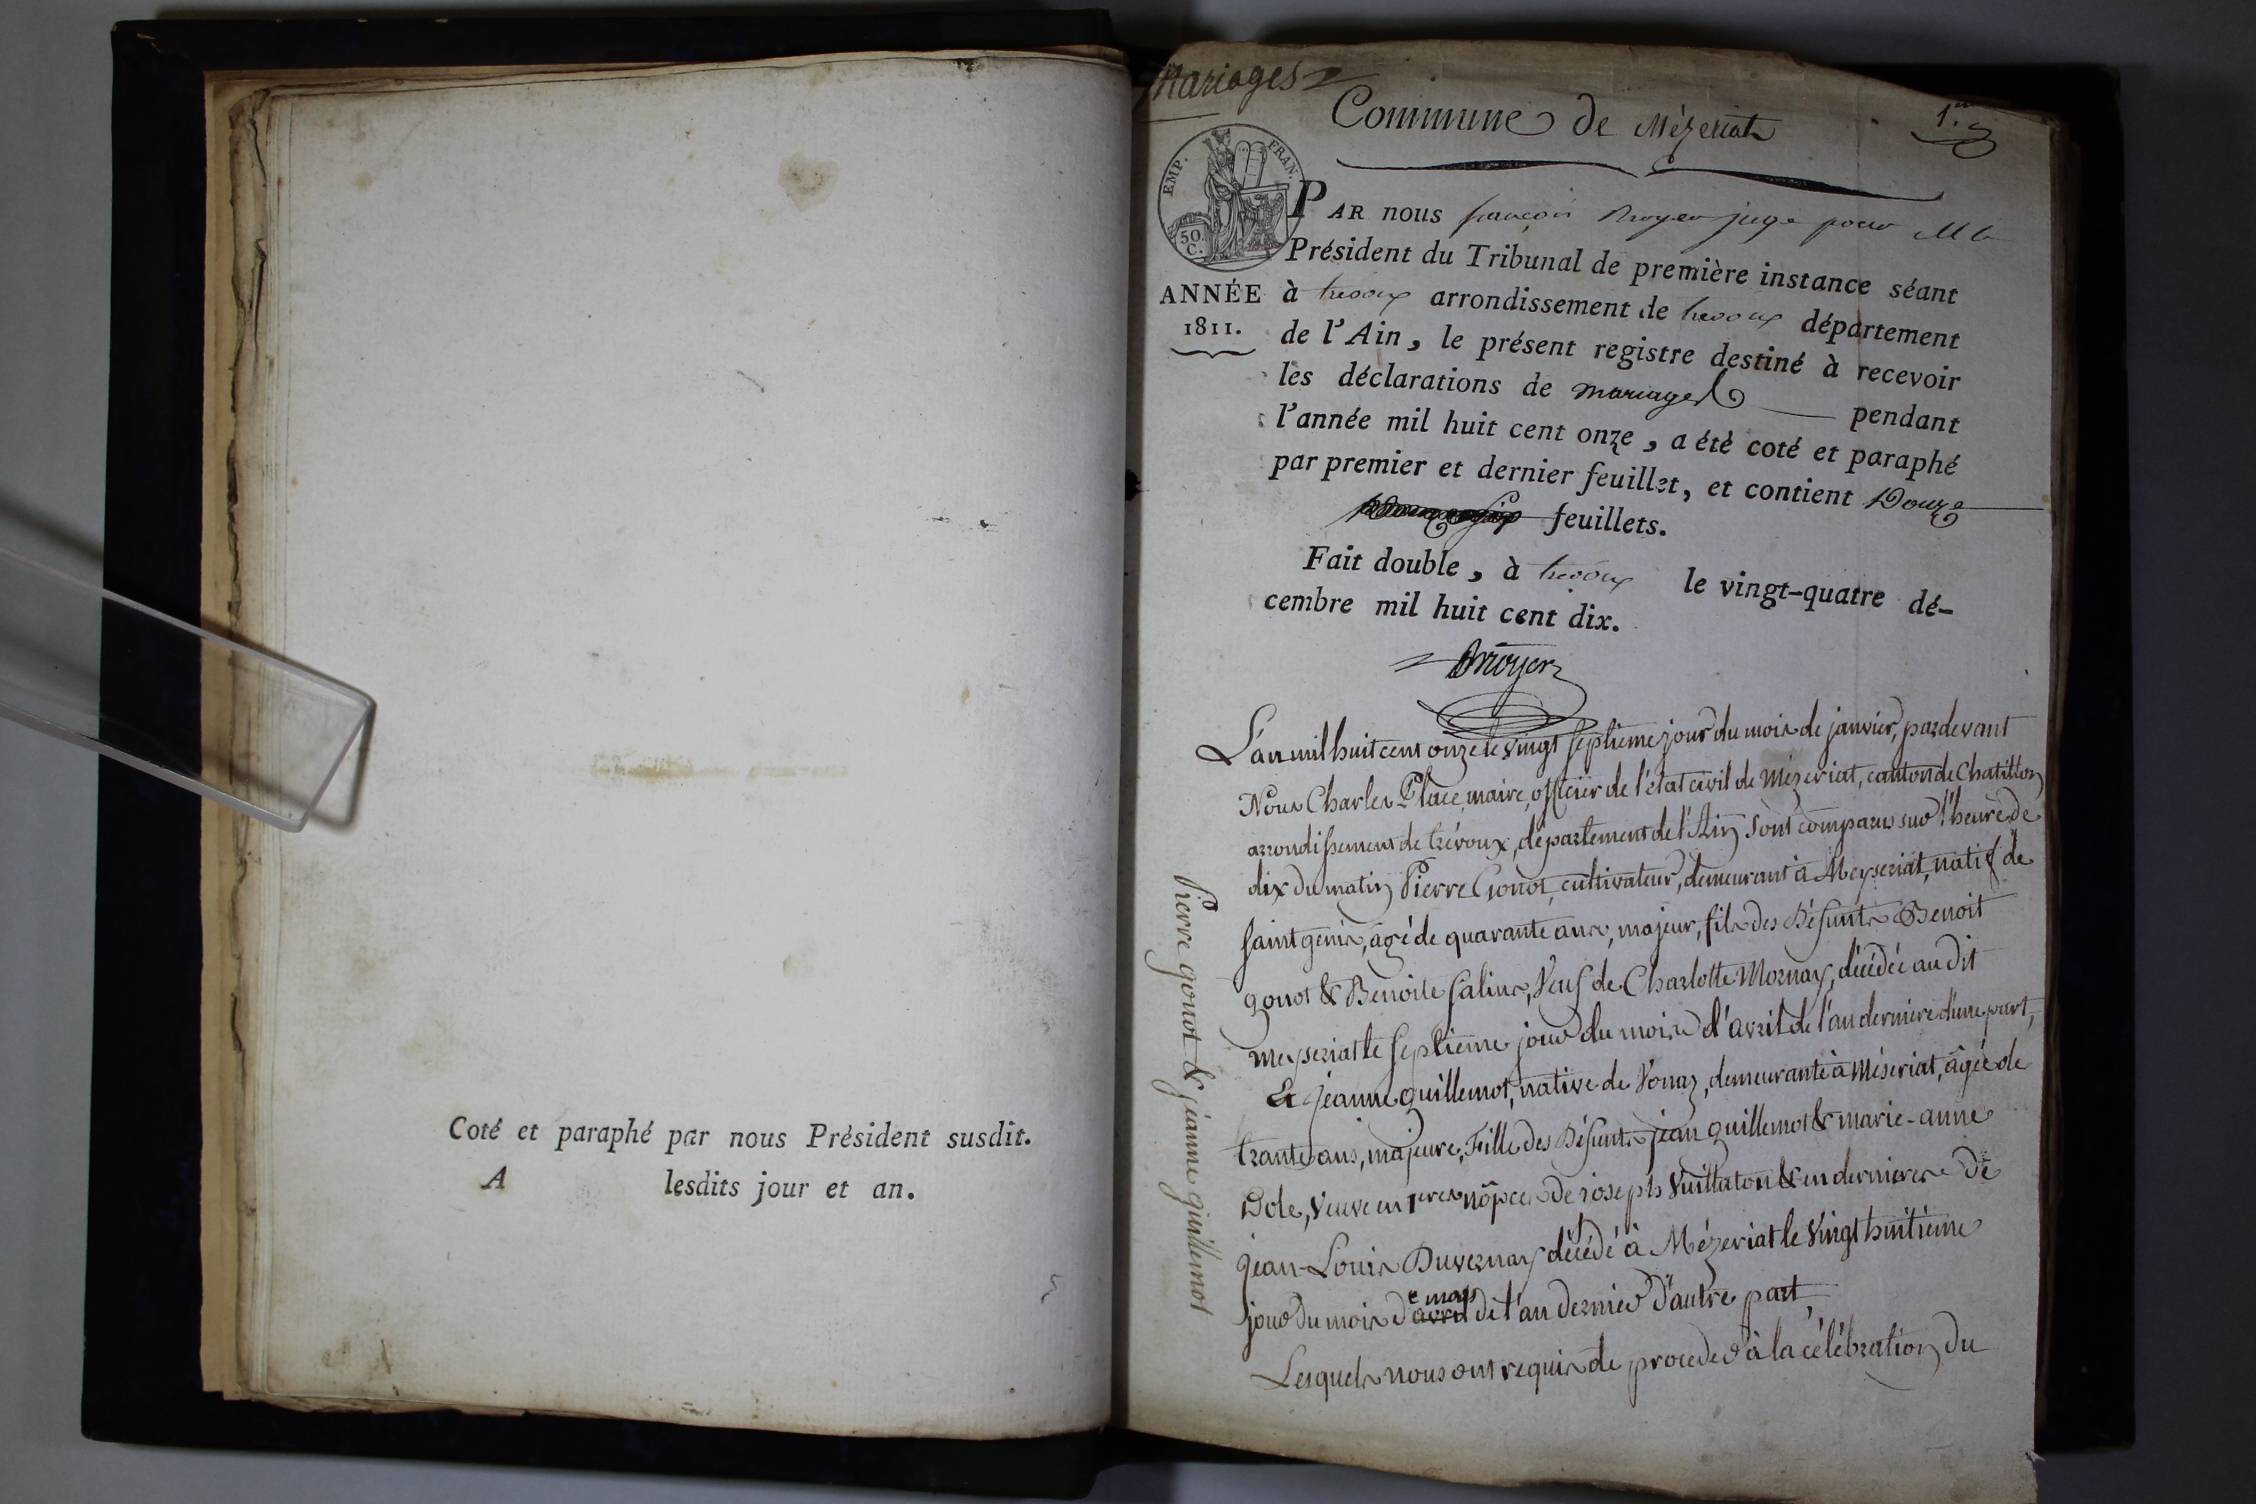 Coté et paraphé par nous Président susdit.
A lesdits jour et an.
Mariages
Commune de Mézeriat
1.er
EMP. FRAN.
50 C.
ANNÉE
1811.
PAR nous françois Broyer juge pour Mr le
Président du Tribunal de première instance séant
à trevoux arrondissement de trevoux département
de l'Ain, le présent registre destiné à recevoir
les déclarations de mariages pendant
l'année mil huit cent onze, a été coté et paraphé
par premier et dernier feuillet, et contient Douze
feuillets.
Fait double, à trevoux le vingt-quatre dé-
cembre mil huit cent dix.
Broyer
L'an mil huit cent onze le vingt septieme jour du mois de janvier, pardevant
Nous Charles Place, maire, officier de l'état civil de Mézeriat, canton de Chatillon
arrondissement de trévoux, département de l'Ain, sont comparus sur l'heure de
dix du matin Pierre Gonot, cultivateur, demeurant à Meyseriat, natif de
saint genis, agé de quarante ans, majeur, fils des défunts Benoit
gonot & Benoite salins, Veuf de Charlotte Mornay, décédée au dit
meyseriat le septieme jour du mois d'avril de l'an derniere d'une part,
Et jeanne guillemot, native de Vonaz, demeurante à Méseriat, âgée de
trante ans, majeure, Fille des défunts jean guillemot & marie-anne
Dole, Veuve en 1eres nôpces de joseph Vuillaton & en dernieres de
jean-Louis Duvernay décédé à Mézeriat le Vingt huitième
jour du mois d'avril e mars de l'an dernier d'autre part
Lesquels nous ont requis de proceder à la célébration du
Pierre gonot & jeanne guillemot